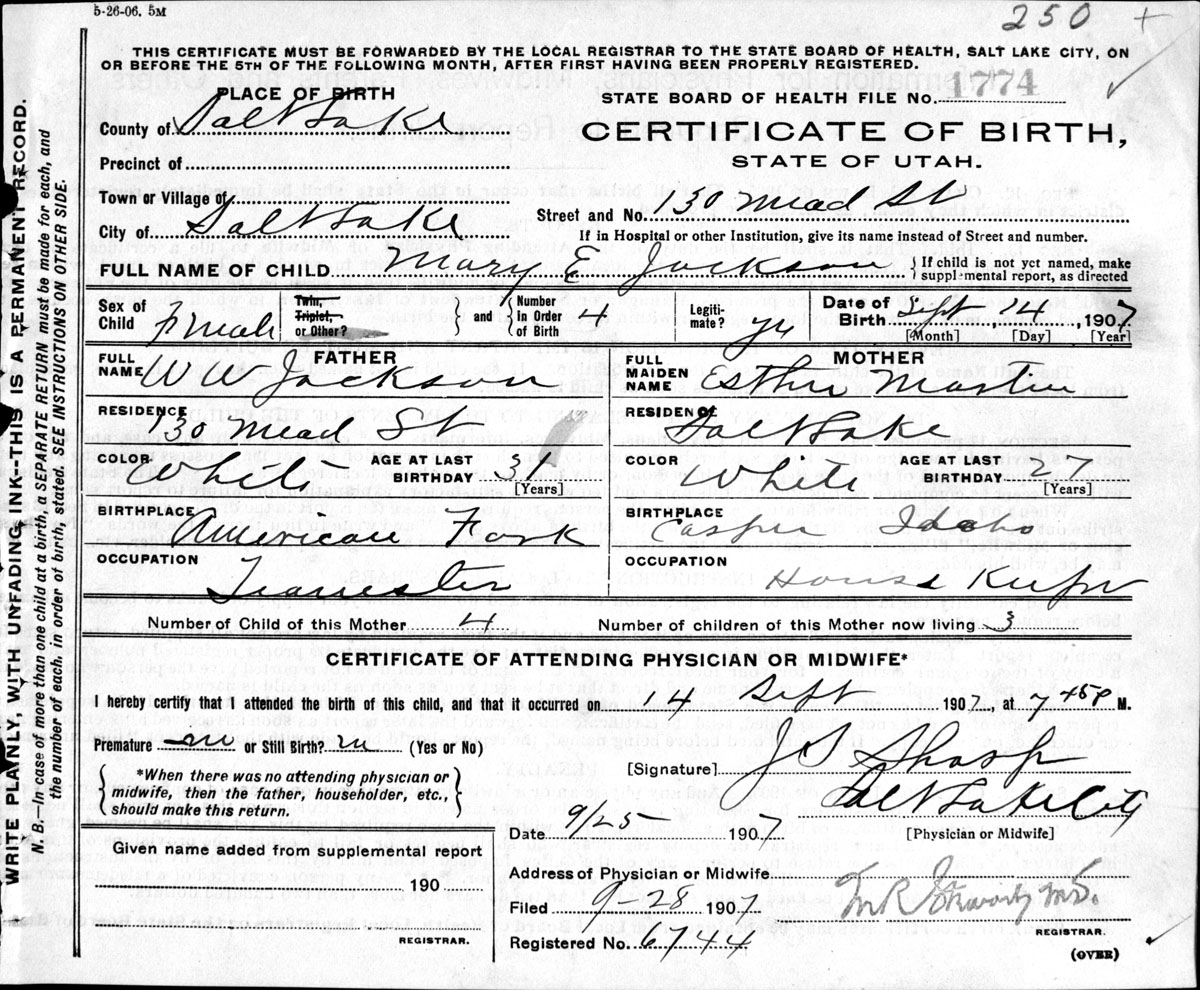 5-26-06. 5M
250 +
THIS CERTIFICATE MUST BE FORWARDED BY THE LOCAL REGISTRAR TO THE STATE BOARD OF HEALTH, SALT LAKE CITY, ON
OR BEFORE THE 5TH OF THE FOLLOWING MONTH, AFTER FIRST HAVING BEEN PROPERLY REGISTERED.
PLACE OF BIRTH
STATE BOARD OF HEALTH FILE No. 1774
County of Salt Lake
CERTIFICATE OF BIRTH,
Precinct of
STATE OF UTAH.
Town or Village of
Street and No. 130 Mead St
City of Salt Lake
If in Hospital or other Institution, give its name instead of Street and number.
FULL NAME OF CHILD Mary E Jackson
If child is not yet named, make
supplemental report, as directed
Sex of Child Female
Twin, Triplet, or Other?
and Number in Order of Birth 4
Legiti-mate? yes
Date of Birth Sept 14, 1907
[Month] [Day] [Year]
FATHER
MOTHER
FULL NAME W W Jackson
FULL MAIDEN NAME Esther Martin
RESIDENCE 130 Mead St
RESIDENCE Salt Lake
COLOR White AGE AT LAST BIRTHDAY 31 [Years]
COLOR White AGE AT LAST BIRTHDAY 27 [Years]
BIRTHPLACE American Fork
BIRTHPLACE Idaho
OCCUPATION Teamster
OCCUPATION House Keeper
Number of Child of this Mother 4
Number of children of this Mother now living 3
CERTIFICATE OF ATTENDING PHYSICIAN OR MIDWIFE*
I hereby certify that I attended the birth of this child, and that it occurred on 14 Sept 1907, at 7 45 P M.
Premature no or Still Birth? no (Yes or No)
*When there was no attending physician or
midwife, then the father, householder, etc.,
should make this return.
[Signature] J S Sharp
Salt Lake City
Date 9/25 1907
[Physician or Midwife]
Given name added from supplemental report
190
REGISTRAR.
Address of Physician or Midwife
Filed 9-28 1907
M.D.
REGISTRAR.
Registered No. 6744
(OVER)
WRITE PLAINLY WITH UNFADING INK-THIS IS A PERMANENT RECORD.
N. B.—In case of more than one child at a birth a SEPARATE RETURN must be made for each, and
the number of each, in order of birth, stated. SEE INSTRUCTIONS ON OTHER SIDE.